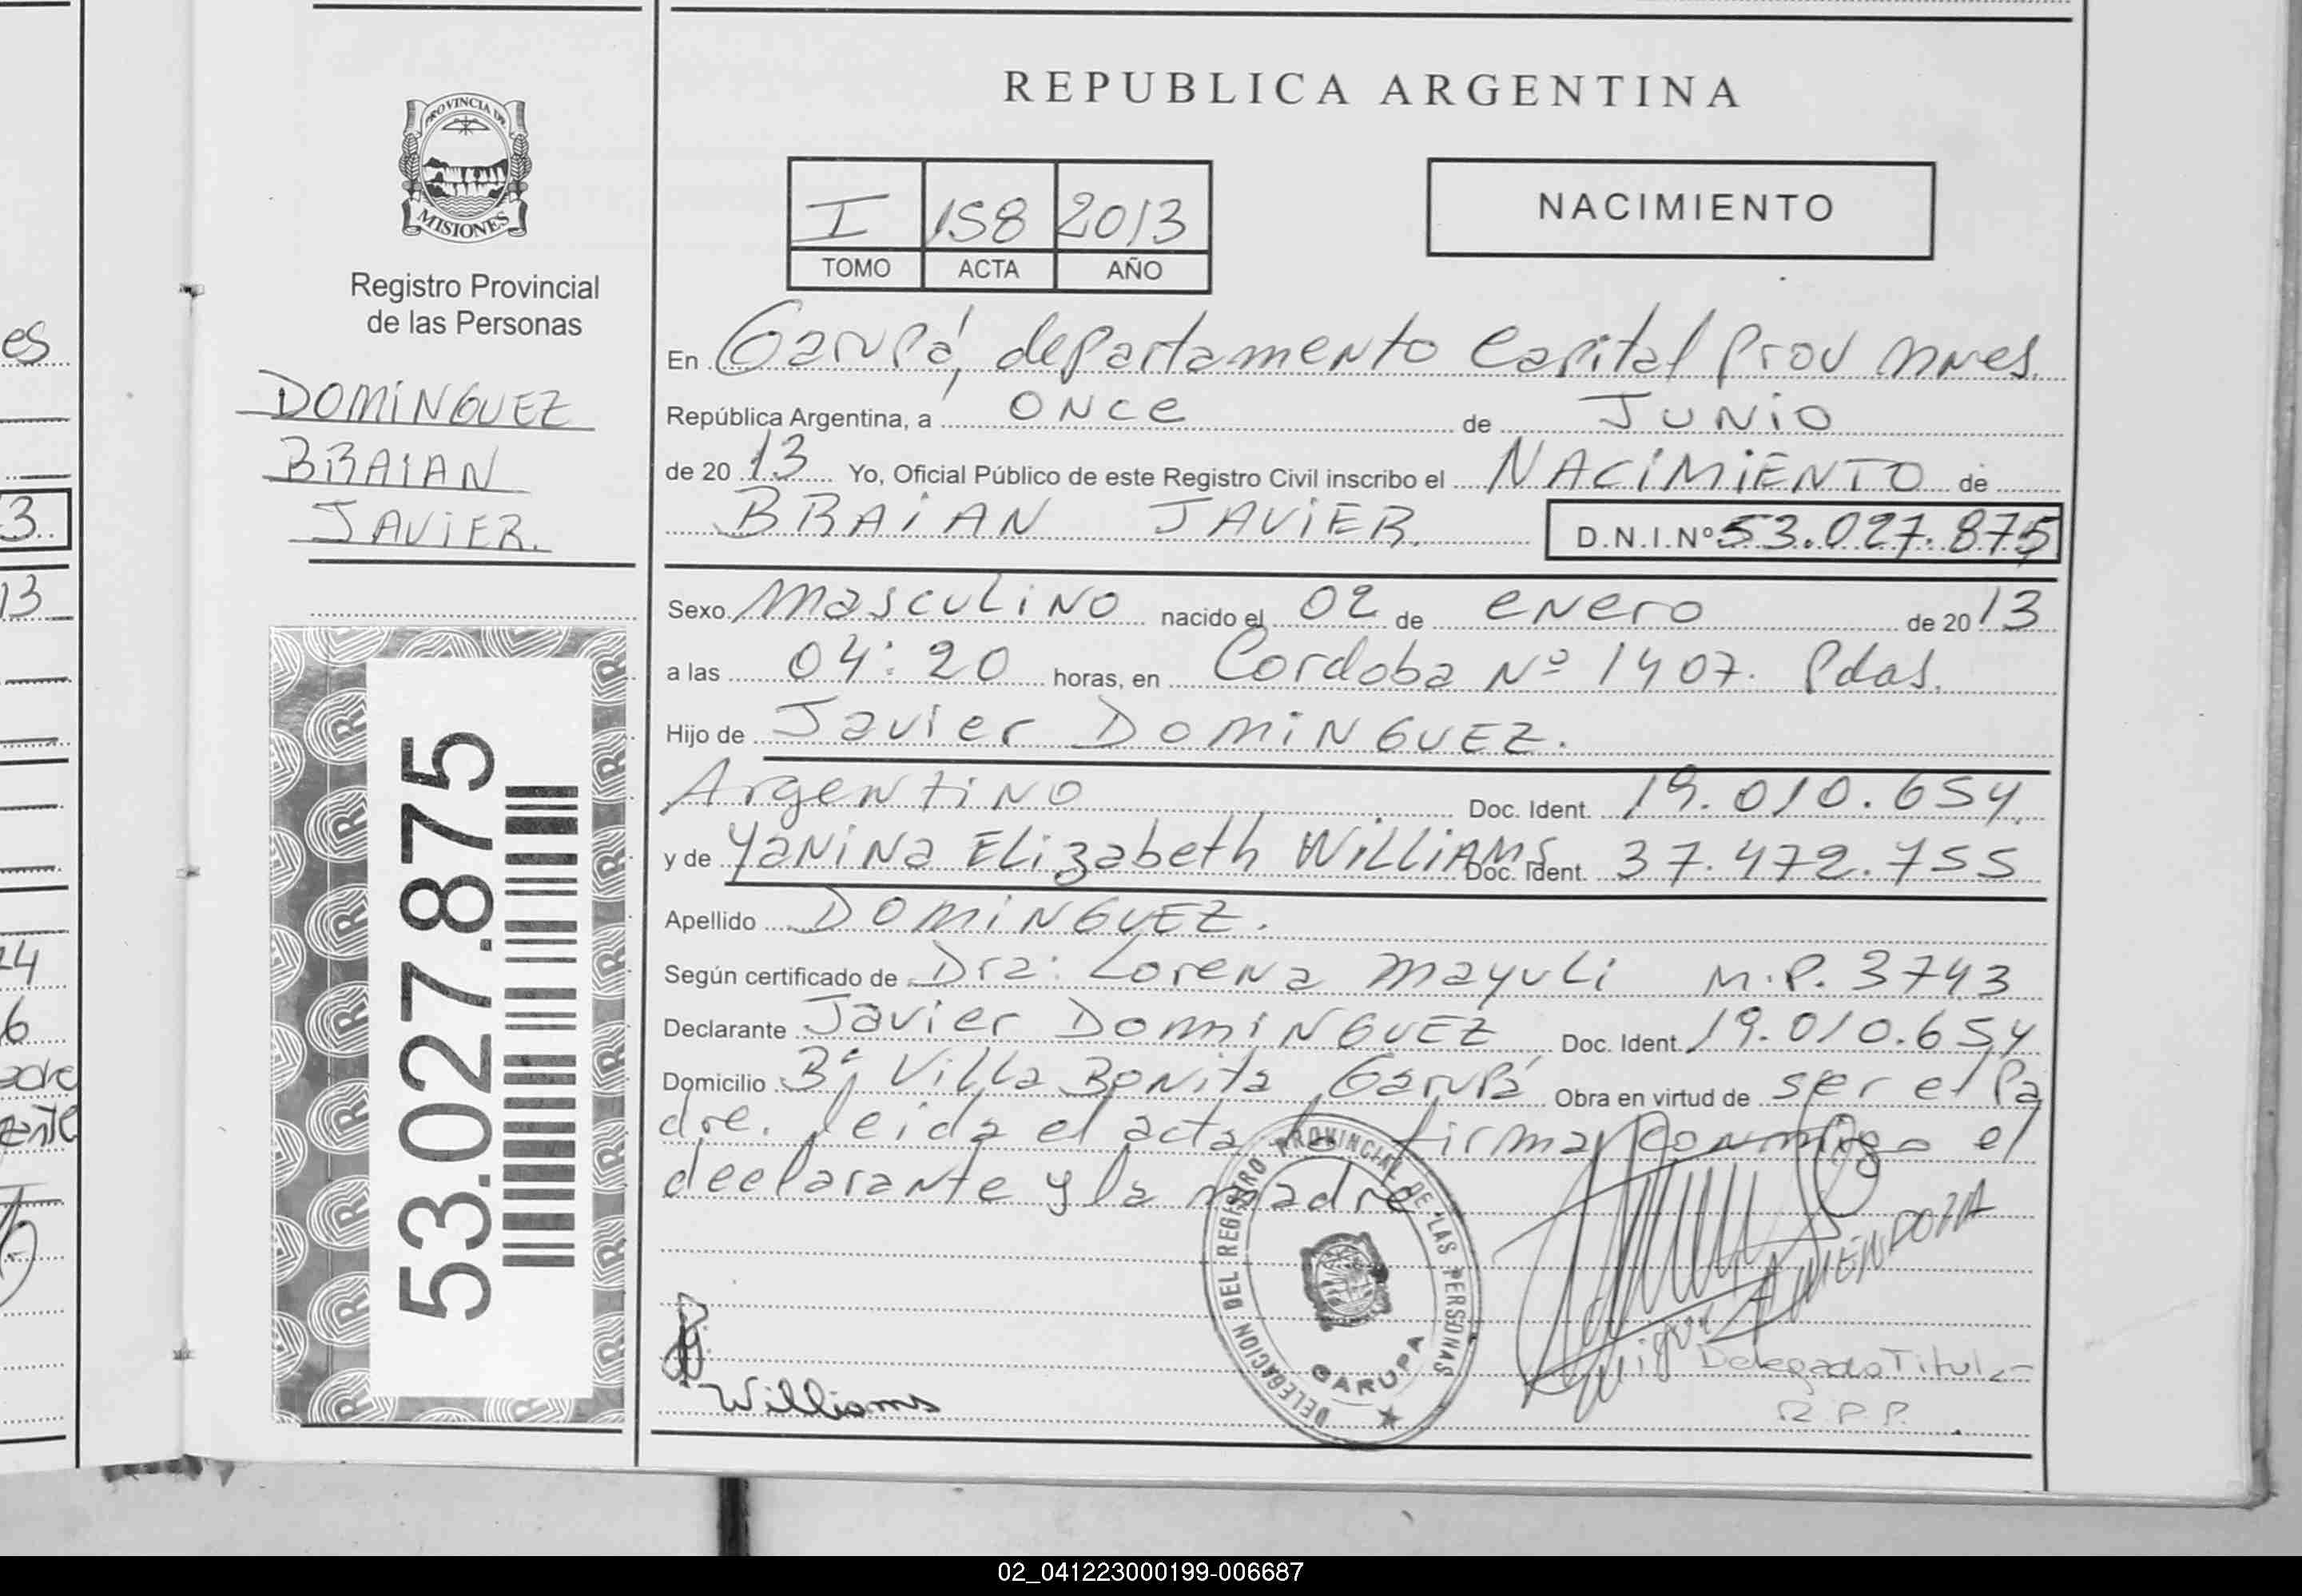 REPUBLICA ARGENTINA
PROVINCIA DE
MISIONES
Registro Provincial
de las Personas
DOMINGUEZ
BRAIAN
JAVIER.
53.027.875
I 158 2013
TOMO ACTA AÑO
NACIMIENTO
En Garupá, departamento Capital Prov Mnes.
República Argentina, a once de JUNIO
de 20 13 Yo, Oficial Público de este Registro Civil inscribo el NACIMIENTO de
BRAIAN JAVIER. D.N.I.Nº 53.027.875
Sexo masculino nacido el 02 de enero de 20 13
a las 04:20 horas, en Cordoba Nº 1407. Pdas.
Hijo de Javier DOMINGUEZ.
Argentino Doc. Ident. 19.010.654.
y de Yanina Elizabeth WILLIAMS Doc. Ident. 37.472.755
Apellido DOMINGUEZ.
Según certificado de Dra: Lorena Mayuli M.P. 3743
Declarante Javier DOMINGUEZ Doc. Ident 19.010.654
Domicilio Bº Villa Bonita Garupá Obra en virtud de ser el Pa
dre. leida el acta la firma conmigo el
declarante y la madre
DELEGACION DEL REGISTRO PROVINCIAL DE LAS PERSONAS
GARUPA
Williams
Miguel A MENDOZA
Delegado Titular
R.P.P.
es
3
13
24
6
adre
ante
02_041223000199-006687